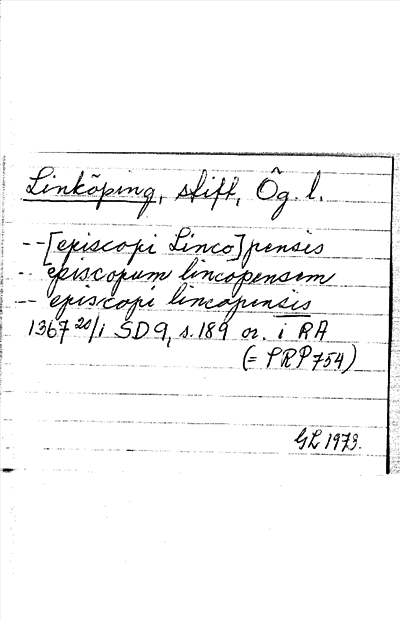 Linköping, stift, Ög. l.
--[episcopi Linco]pensis
-- episcopum lincopensem
-- episcopi lincopensis
1367 20/1 SD 9, s. 189 or. i RA
(= PRP 754)
GL 1973.